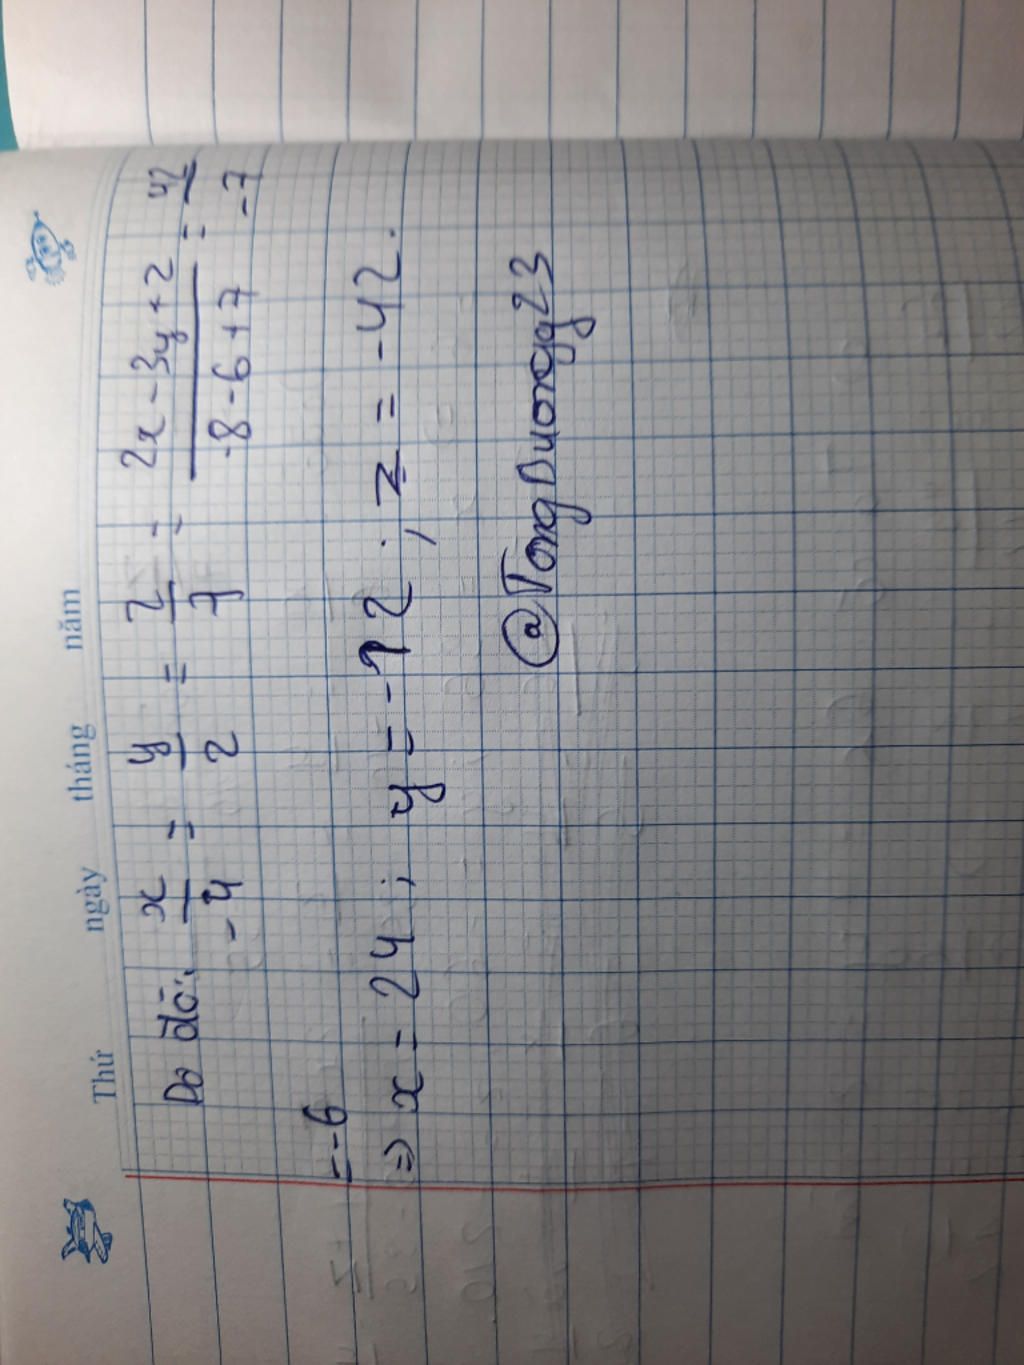 Thứ ngày tháng năm
Do đó: x/-4 = y/2 = z/7 = 2x - 3y + z/-8 - 6 + 7 = 42/-7
= -6
=> x = 24; y = -12; z = -42.
@TongDuongg23